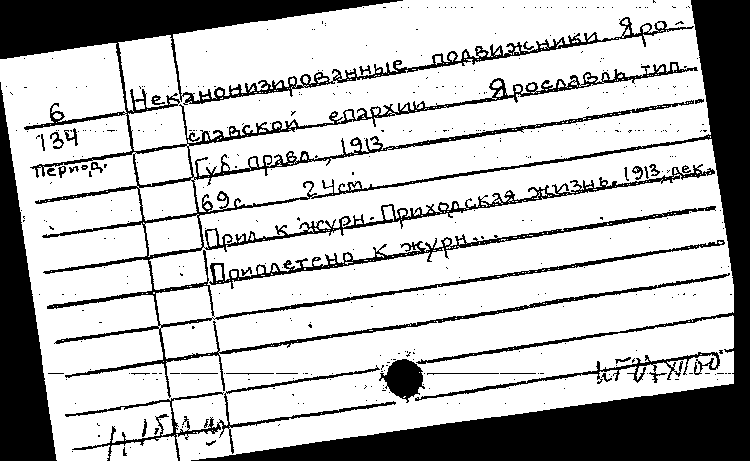 Неканонизированные подвижники. Яро-
6
славской епархии Ярославль, тип.
134
Губ. правл., 1913
период.
69с. 24см.
Прил. к журн. Приходская жизнь. 1913, дек.
Приплетено к журн...